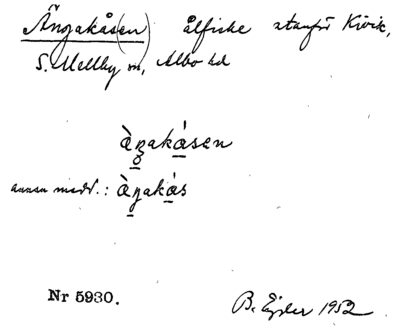 Ängakåsen) ålfiske utanför Kivik,
S. Mellby sn, Albo hd
àŋakásen
annan medd.: àŋakás
Nr 5930.
B. Ejder 1952